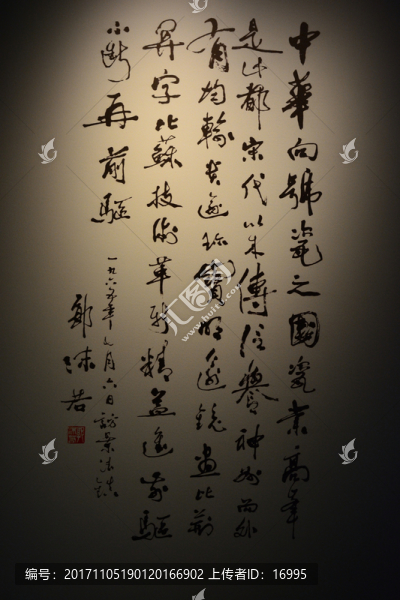 中華向號瓷之國瓷業高峯
是此都宋代以來傳信譽神州而外
有均輸貴逾珍寶明逾鏡畫比荊
關字比蘇技術革新精益進前驅
不斷再前驅
一九六五年七月六日訪景德鎮
郭沫若
汇图网
编号：20171105190120166902 上传者ID：16995